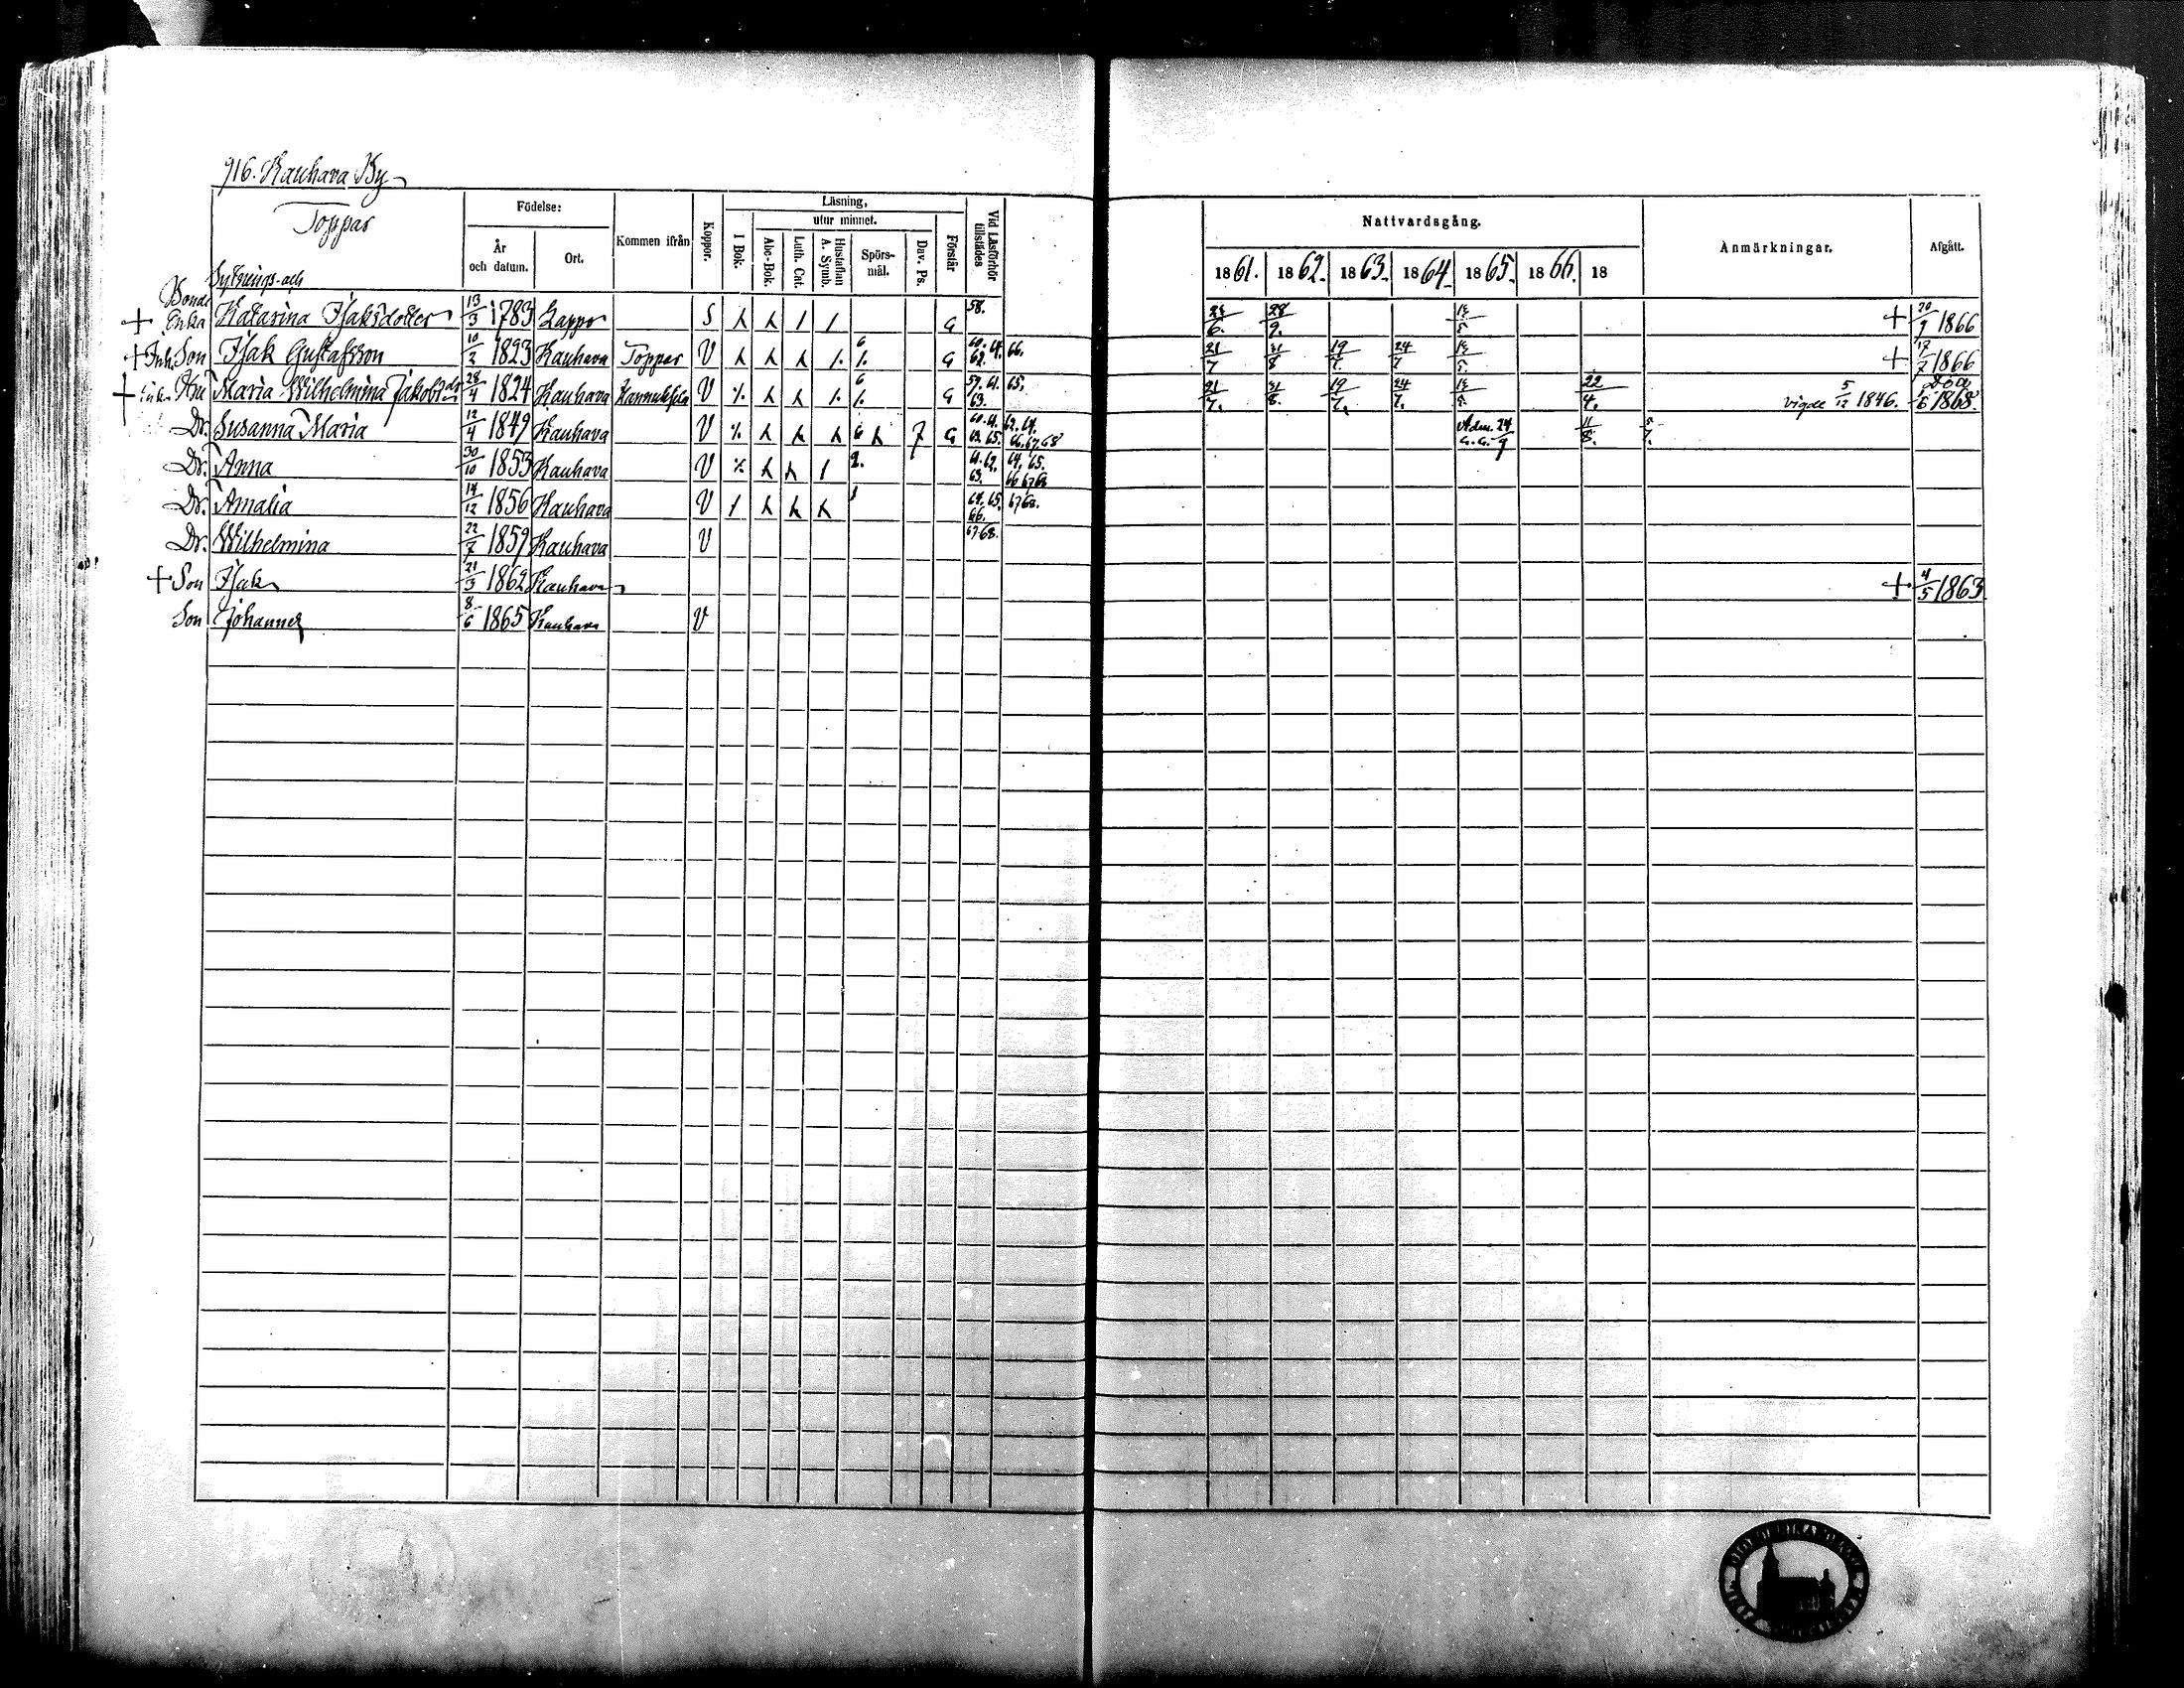 916. Kauhava By
Toppar
Födelse:
År och datum.
Ort.
Kommen ifrån
Koppor.
Läsning,
I Bok.
utur minnet.
Abc-Bok.
Luth. Cat.
Hustaflan A. Symb.
Spörsmål.
Dav. Ps.
Förstår
Vid Läsförhör tillstädes
Nattvardsgång.
1861. 1862. 1863. 1864. 1865. 1866. 18
Anmärkningar.
Afgått.
Sytnings- och
Bonde
+ Enka Katarina Isaksdotter 13/3 1783 Lappo S G 58. 28/9. + 20/9 1866
+ Inh. Son Isak Gustafsson 10/2 1823 Kauhava Toppar V 6 G 60. 61. 62. 66. 21/7 31/8 19/7. 24/7 + 17/7 1866
+ Hu Maria Wilhelmina Jakobsdr 28/4 1824 Kauhava Hannuksela V 6 G 59. 61. 63. 65. 21/7. 31/8. 19/7. 24/7. 22/4. vigde 5/12 1846. 1868.
Dr. Susanna Maria 12/4 1849 Kauhava V 6 7 G 66, 67, 68 Adm. 24/9 11/8.
Dr. Anna 30/10 1853 Kauhava V 2. 61. 62. 63. 64, 65. 66 67 68
Dr. Amalia 14/12 1856 Kauhava V 64. 65. 66. 67 68.
Dr. Wilhelmina 22/7 1859 Kauhava V 67 68.
+ Son Isak 21/3 1862 Kauhava + 4/5 1863
Son Johannes 8/6 1865 Kauhava V